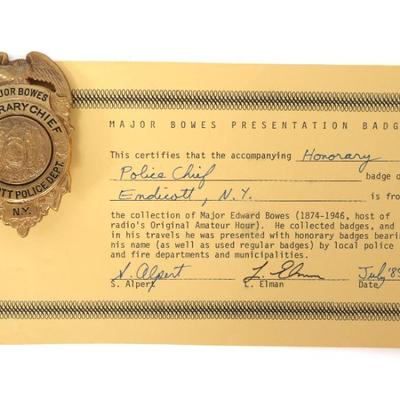 JOR BOWES
RARY CHIEF
OTT POLICE DEPT.
N.Y.
MAJOR BOWES PRESENTATION BADG
This certifies that the accompanying Honorary
Police Chief badge o
Endicott, N.Y. is fro
the collection of Major Edward Bowes (1874-1946, host of
radio's Original Amateur Hour). He collected badges, and
in his travels he was presented with honorary badges bearin
his name (as well as used regular badges) by local police
and fire departments and municipalities.
S. Alpert L. Elman July '89
S. Alpert L. Elman Date